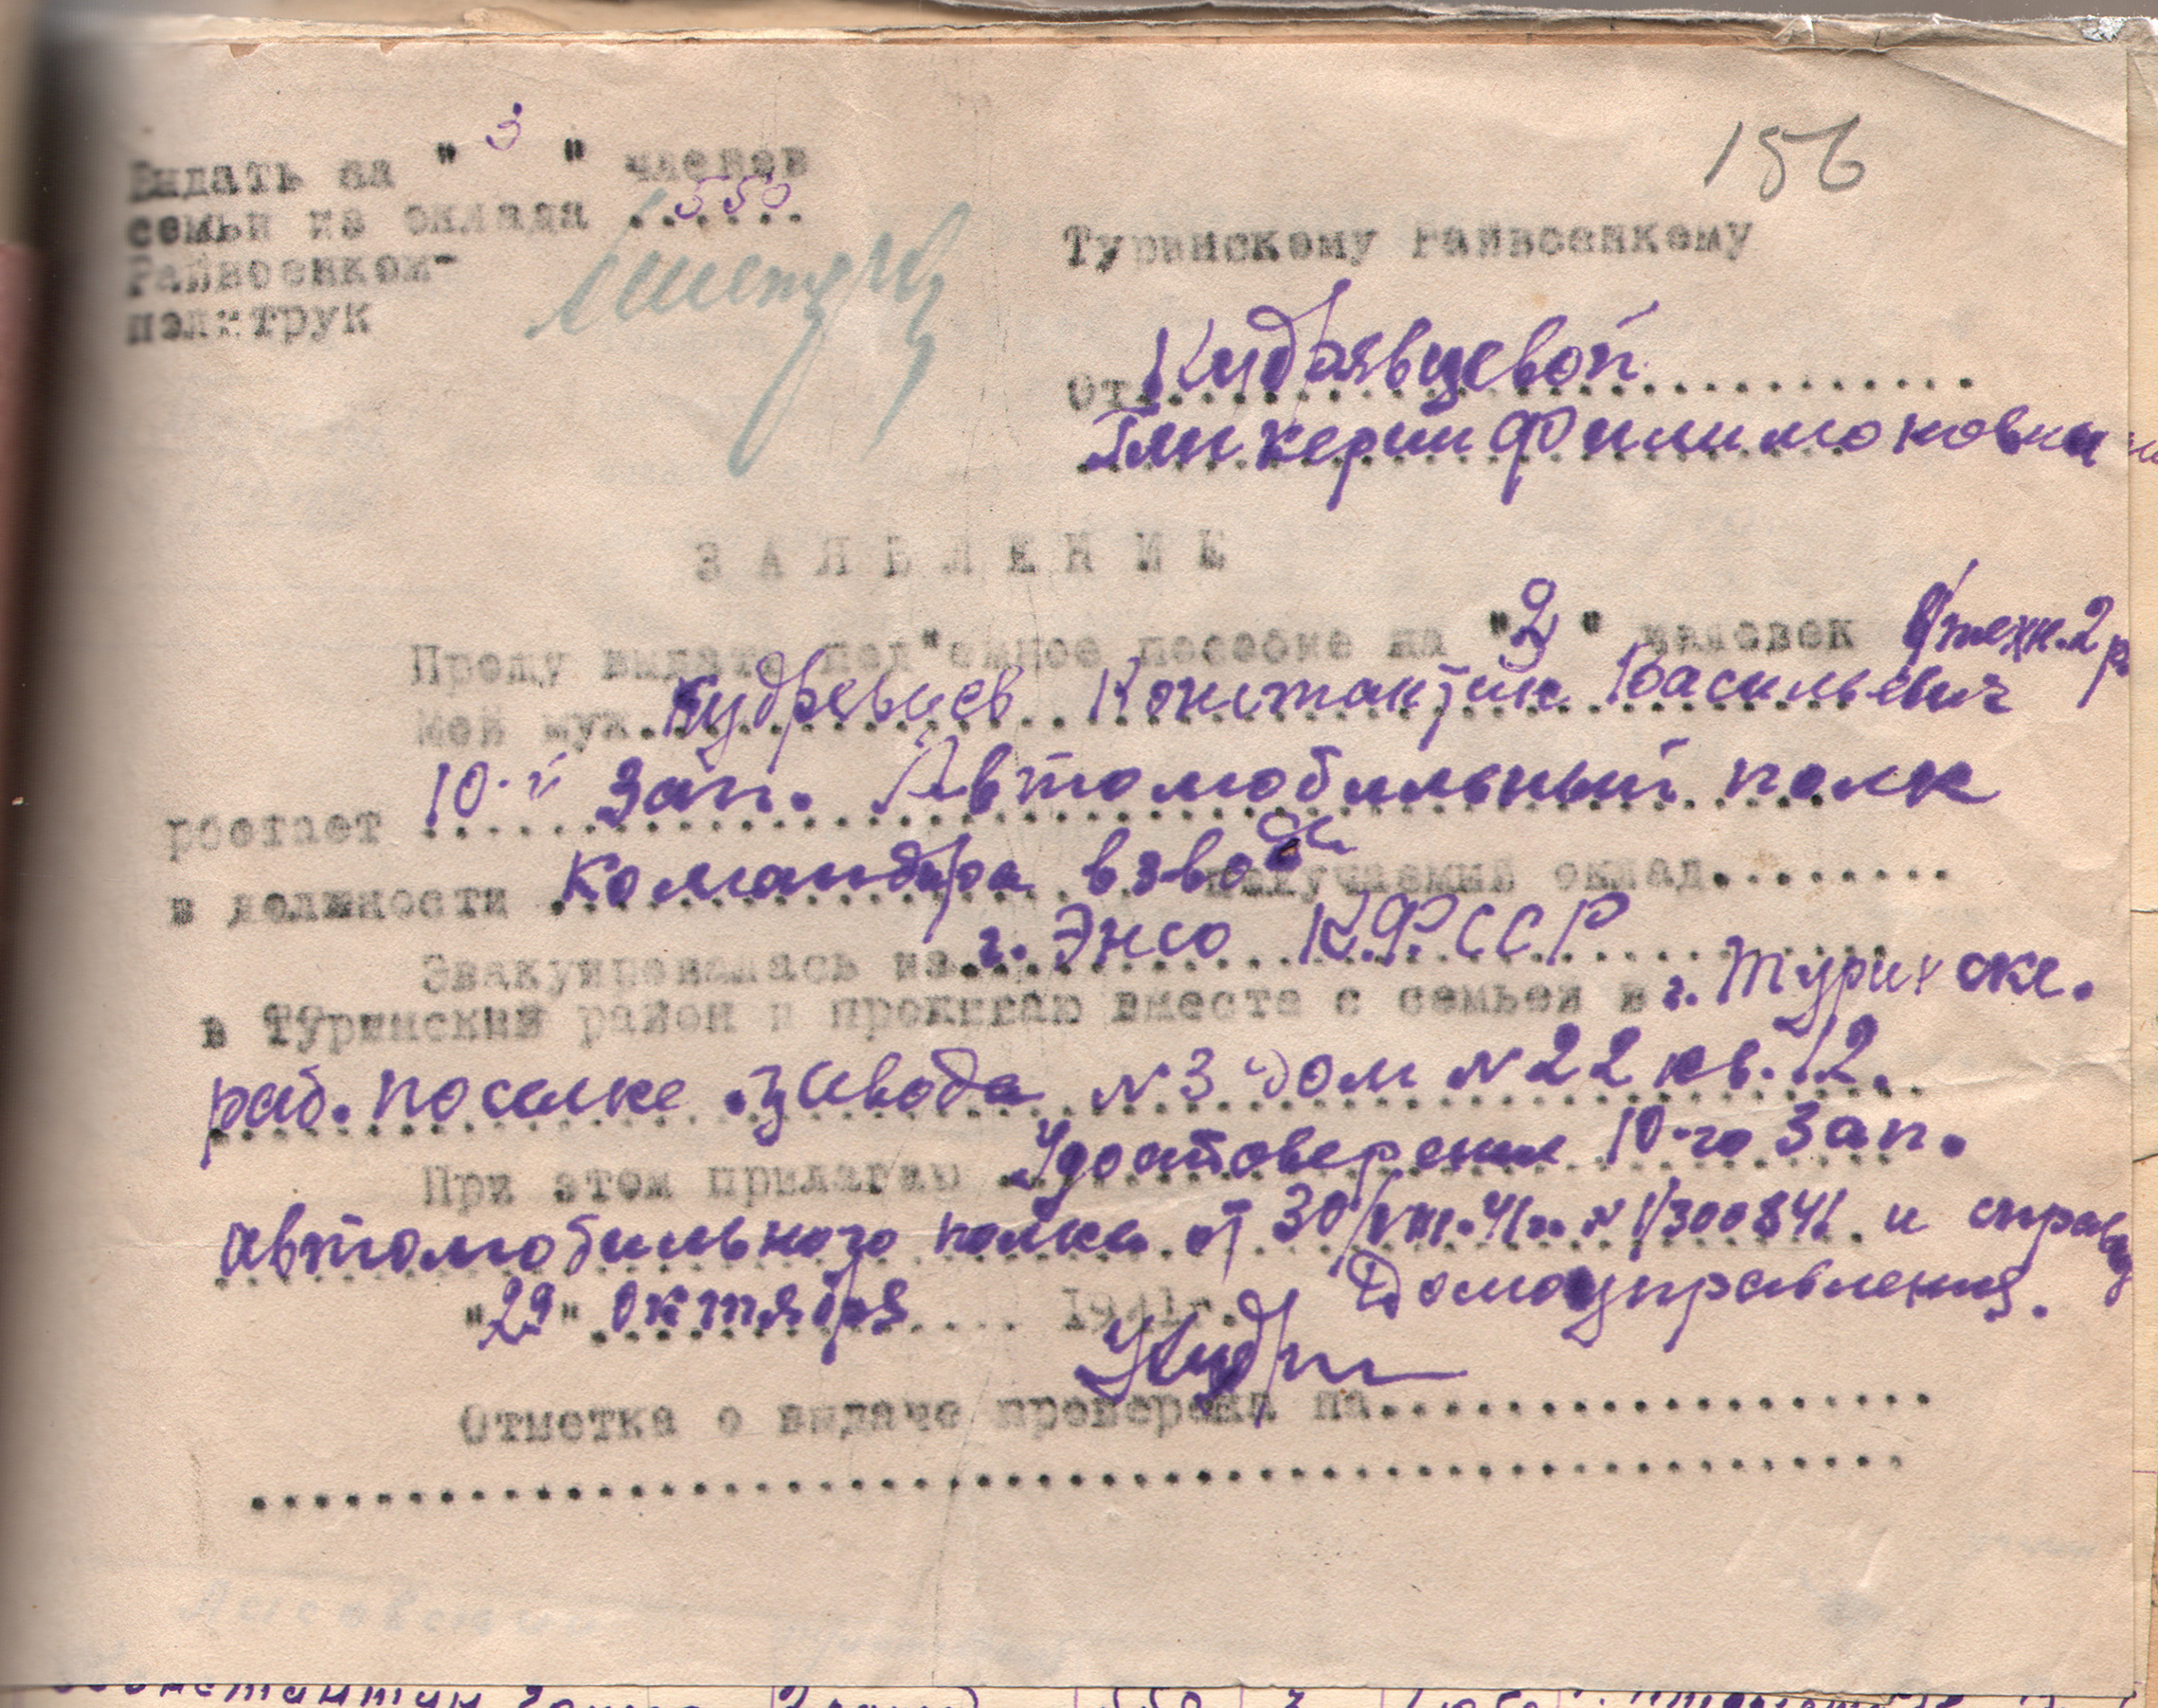 Выдать на " 3 " членов
семьи из оклада ..550..
Райвоенком-
политрук
156
Туринскому Райвоенкому
От Кудрявцевой
Гликерии Филимоновны
ЗАЯВЛЕНИЕ
Прошу выдать под"емное пособие на "2" человек
техн. 2 р.
Мой муж Кудревцев Константин Васильевич
рботает 10-й зап. Автомобильный полк
в должности командира взвода получаемый оклад........
Эвакуировалась из г. Энсо К.Ф.ССР
в Туринский район и проживаю вместе с семьей в г. Туринске.
раб. поселке завода №3 дом №22 кв. 12.
При этом прилагаю Удостоверение 10-го зап.
автомобильного полка от 30/VIII.41г. № 1/300841 и справку
Домоуправления.
"29" Октября 1941г.
Кудр
Отметка о выдаче проверена на..................